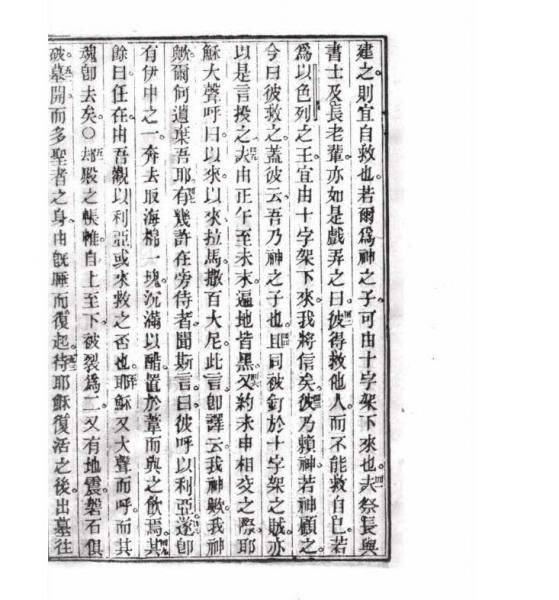 建之。則宜自救也。若爾爲神之子。可由十字架下來也。夫祭長與
書士及長老輩。亦如是戲弄之曰。彼得救他人。而不能救自己。若
爲以色列之王。宜由十字架下來。我將信矣。彼乃賴神。若神顧之。
今曰彼救之。蓋彼云。吾乃神之子也。且同被釘於十字架之賊。亦
以是言投之。夫由正午至未末。遍地皆黑。又約未申相交之際。耶
穌大聲呼曰。以來以來拉馬撒百大尼。此言卽譯云。我神歟。我神
歟。爾何遺棄吾耶。有幾許在旁侍者聞斯言。曰彼呼以利亞。遂卽
有伊中之一。奔去取海棉一塊。沉滿以醋。置於葦而與之飲焉。其
餘曰。任在。由吾觀以利亞或來救之否也。耶穌又大聲而呼。而其
魂卽去矣。○却殿之帳帷。自上至下。破裂爲二。又有地震。磐石俱
破。墓開。而多聖者之身。由旣睡而復起。待耶穌復活之後。出墓往